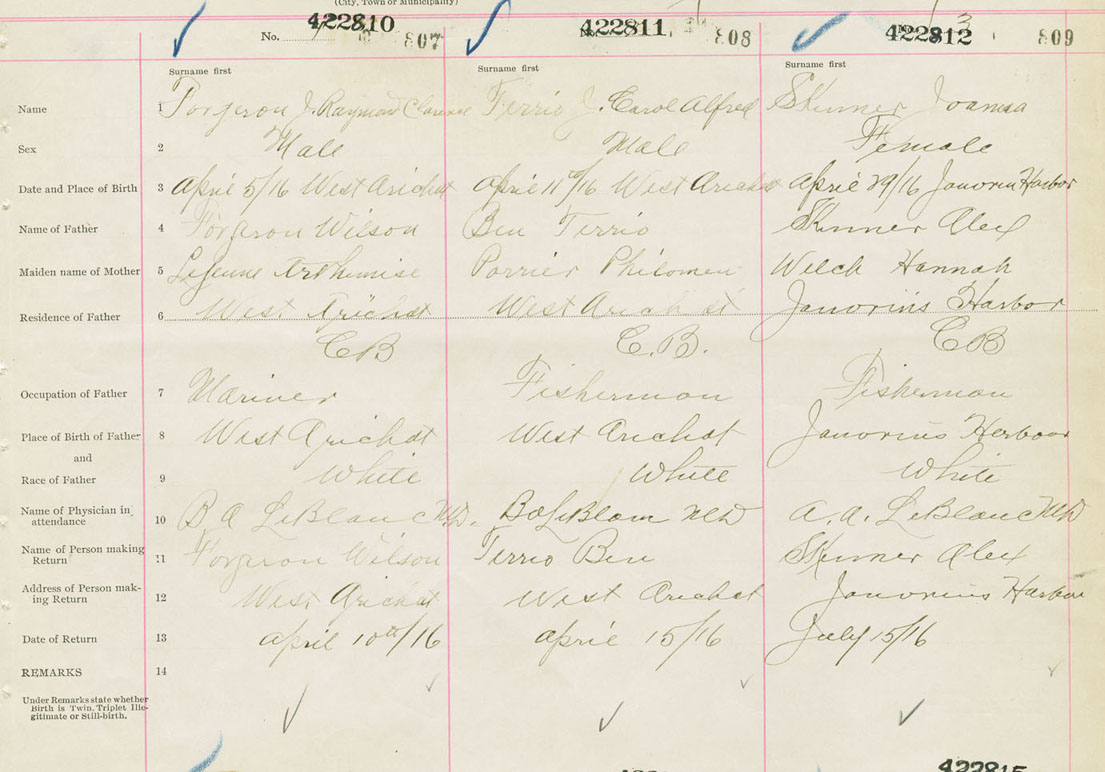 (City, Town or Municipality)
No. 422810 807 422811 808 422812 809
Surname first Surname first Surname first
Name 1 Forgeron J. Raymond Clarence Terrio J. Carol Alfred Skinner Joanna
Sex 2 Male Male Female
Date and Place of Birth 3 April 5/16 West Arichat April 11th/16 West Arichat April 29/16 Janvrin Harbor
Name of Father 4 Forgeron Wilson Ben Terrio Skinner Alex
Maiden name of Mother 5 LeJeune Arthemise Porrier Philomen Welch Hannah
Residence of Father 6 West Arichat West Arichat Janvrins Harbor
CB C.B. CB
Occupation of Father 7 Mariner Fisherman Fisherman
Place of Birth of Father 8 West Arichat West Arichat Janvrins Harbour
and
Race of Father 9 White White White
Name of Physician in attendance 10 B A LeBlanc M.D. BALeBlanc MD A. A. LeBlanc MD
Name of Person making Return 11 Forgeron Wilson Terrio Ben Skinner Alex
Address of Person mak-ing Return 12 West Arichat West Arichat Janvrins Harbor
Date of Return 13 April 10th/16 April 15/16 July 15/16
REMARKS 14
Under Remarks state whether
Birth is Twin, Triplet Ille-
gitimate or Still-birth.
422815